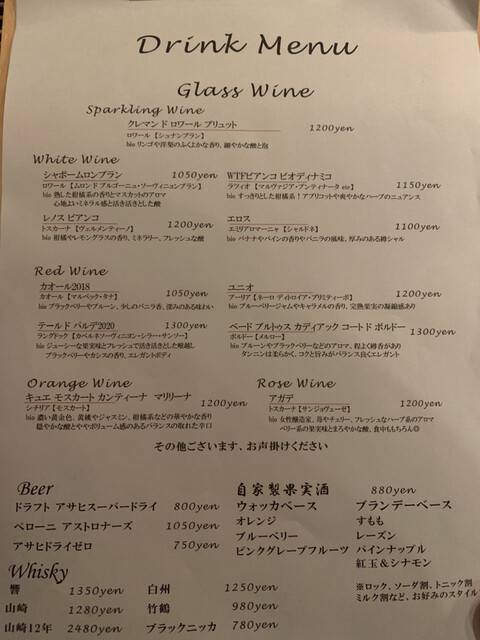 Drink Menu
Glass Wine
Sparkling Wine
クレマン ド ロワール ブリュット 1200yen
ロワール 【シュナンブラン】
bio リンゴや洋梨のふくよかな香り、細やかな酸と泡
White Wine
シャポームロンブラン 1050yen
ロワール 【ムロンド ブルゴーニュ・ソーヴィニョンブラン】
bio 熟した柑橘系の香りとマスカットのアロマ
心地よいミネラル感と活き活きとした酸
WTFビアンコ ビオディナミコ 1150yen
ラツィオ 【マルヴァジア・プンティナータ etc】
bio すっきりとした柑橘系!アプリコットや爽やかなハーブのニュアンス
レノス ビアンコ 1200yen
トスカーナ 【ヴェルメンティーノ】
bio 柑橘やレモングラスの香り、ミネラリー、フレッシュな酸
エロス 1100yen
エミリアロマーニャ 【シャルドネ】
bio バナナやパインの香りやバニラの風味、厚みのある樽シャル
Red Wine
カオール2018 1050yen
カオール 【マルベック・タナ】
bio ブラックベリーやプルーン、少しのバニラ香、深みのある味わい
ユニオ 1200yen
プーリア 【ネーロ ディトロイア・プリミティーボ】
bio ブルーベリージャムやキャラメルの香り、完熟果実の凝縮感あり
テールド パルデ2020 1300yen
ラングドック 【カベルネソーヴィニヨン・シラー・サンソー】
bio ジューシーな果実味とフレッシュで活き活きとした喉越し
ブラックベリーやカシスの香り、エレガントボディ
ベード ブルトゥス カディアック コート ド ボルドー 1300yen
ボルドー 【メルロー】
bio プルーンやブラックベリーなどのアロマ、程よく樽香があり
タンニンは柔らかく、コクと旨みがバランス良くエレガント
Orange Wine
キュエ モスカート カンティーナ マリリーナ 1200yen
シチリア 【モスカート】
bio 濃い黄金色、黄桃やジャスミン、柑橘系などの華やかな香り
穏やかな酸とややボリューム感のあるバランスの取れた辛口
Rose Wine
アガデ 1200yen
トスカーナ 【サンジョヴェーゼ】
bio 女性醸造家、苺やチェリー、フレッシュなハーブ系のアロマ
ベリー系の果実味とまろやかな酸、食中ももちろん◎
その他ございます、お声掛けください
Beer
ドラフト アサヒスーパードライ 800yen
ペローニ アストロナーズ 1050yen
アサヒドライゼロ 750yen
自家製果実酒 880yen
ウォッカベース
オレンジ
ブルーベリー
ピンクグレープフルーツ
ブランデーベース
すもも
レーズン
パインナップル
紅玉&シナモン
※ロック、ソーダ割、トニック割
ミルク割など、お好みのスタイル
Whisky
響 1350yen
白州 1250yen
山崎 1280yen
竹鶴 980yen
山崎12年 2480yen
ブラックニッカ 780yen